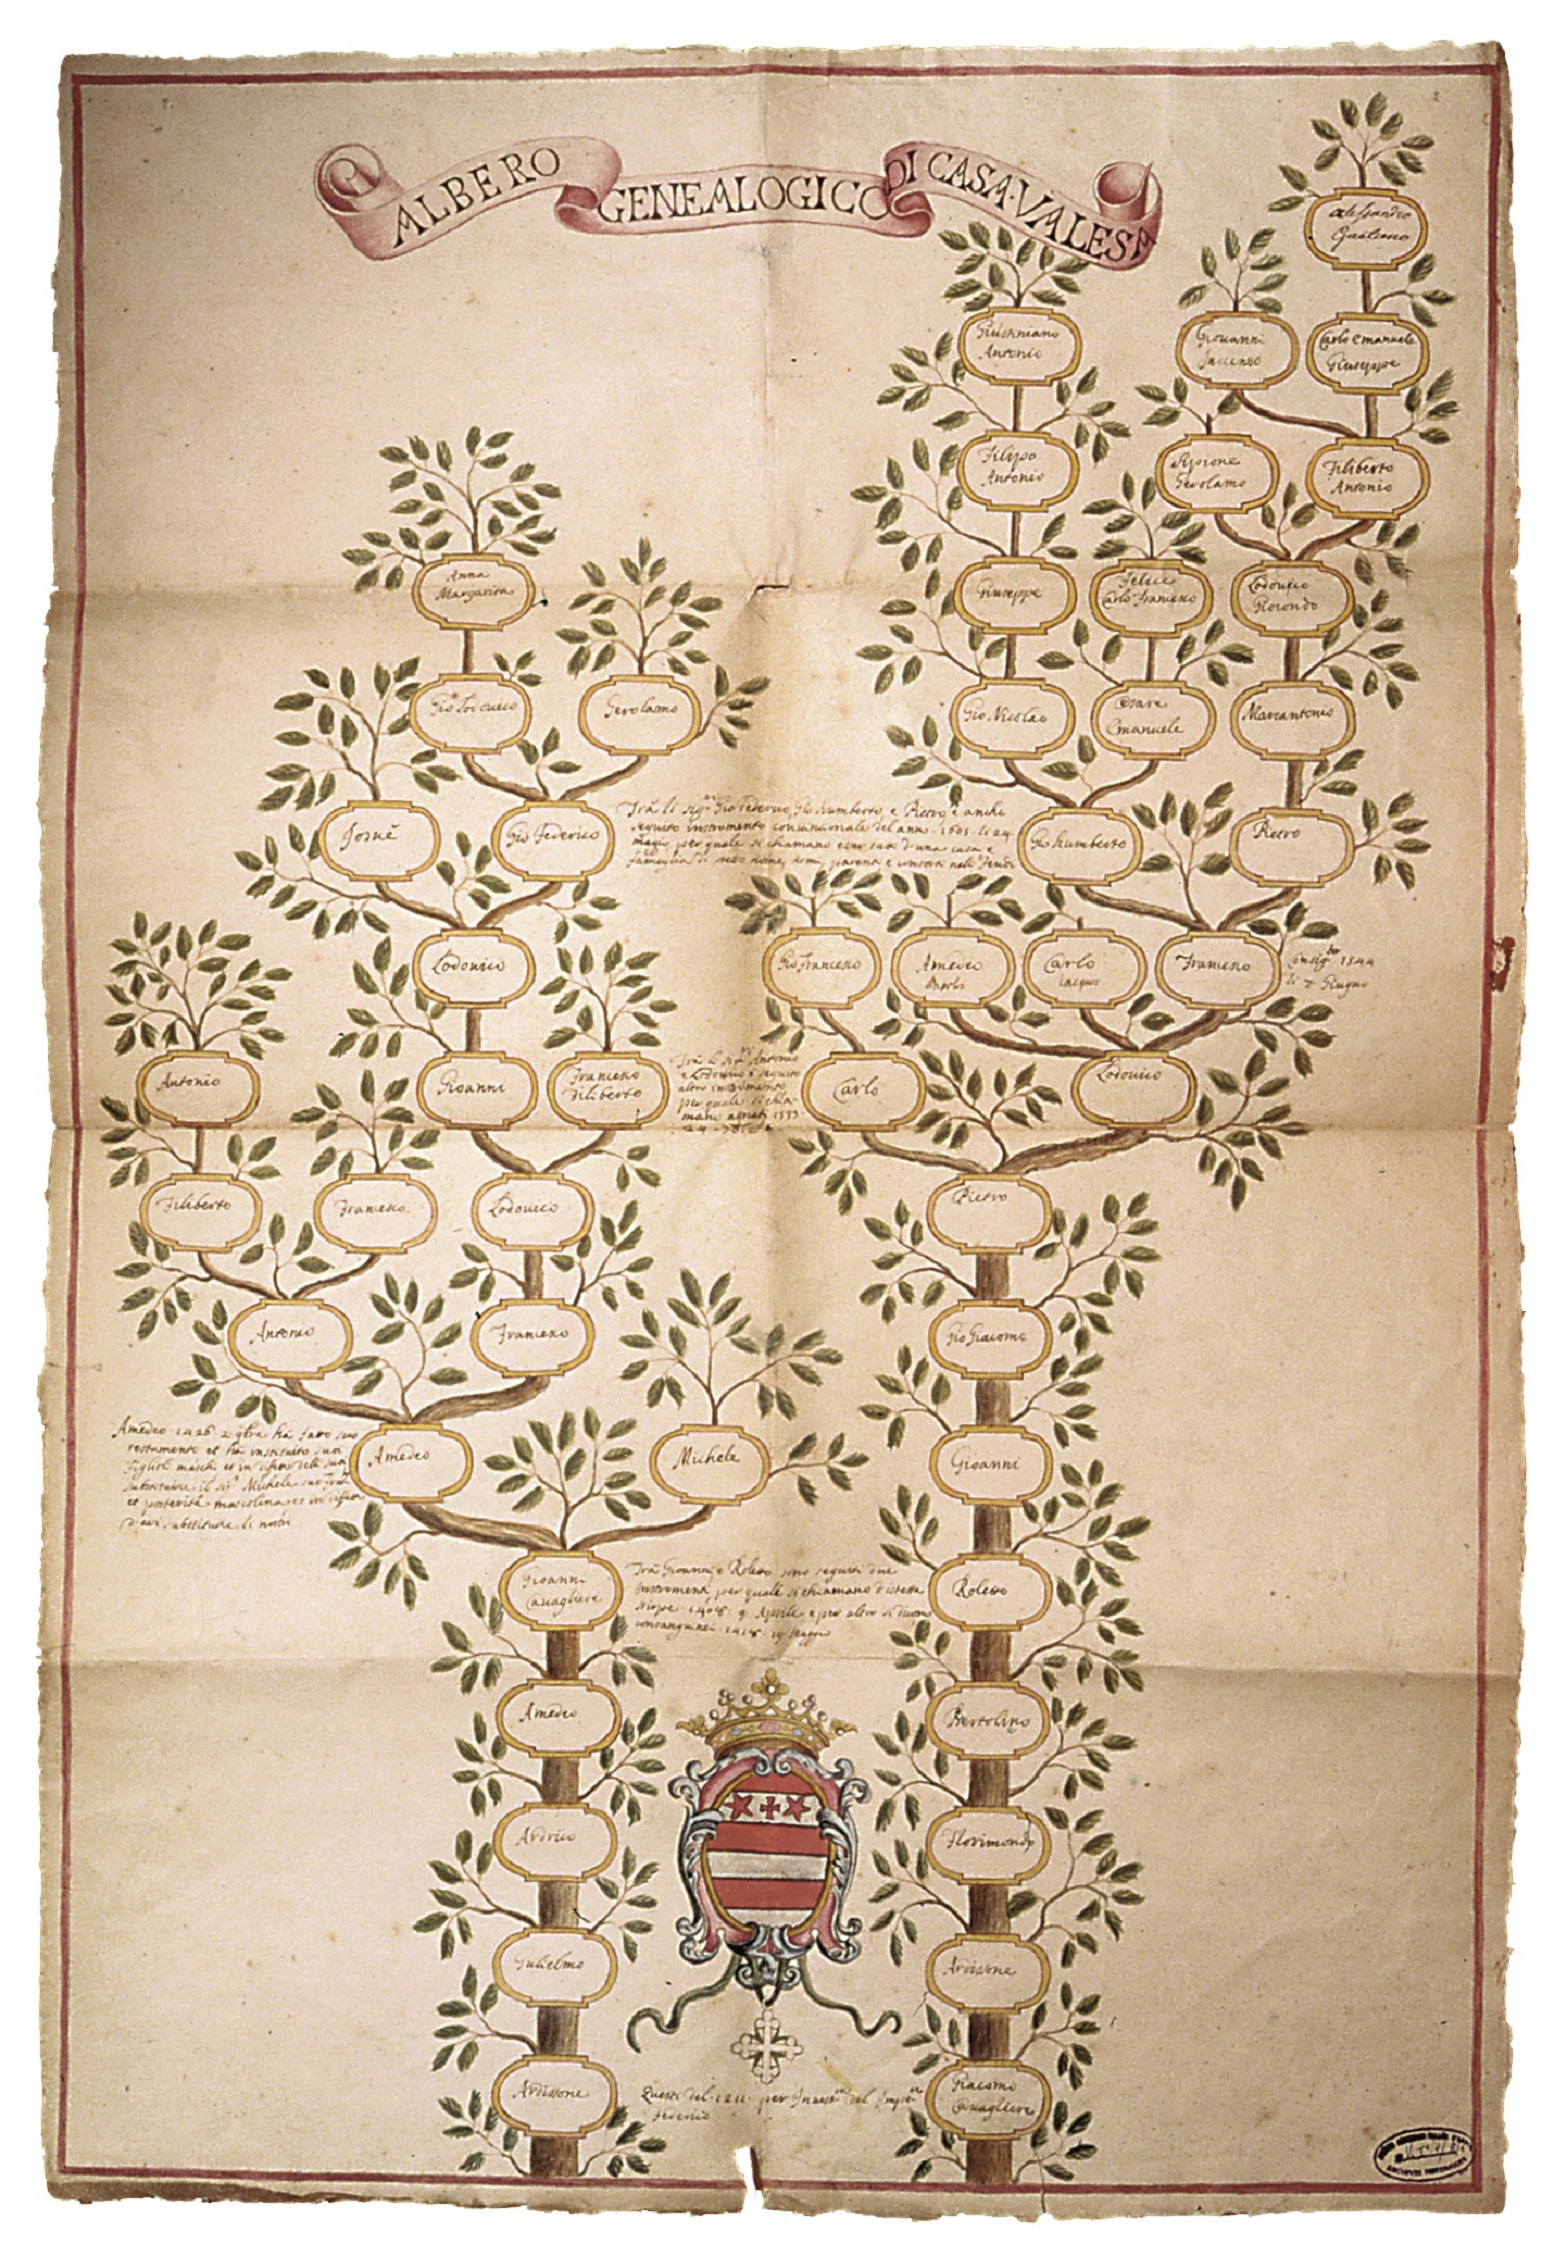 ALBERO GENEALOGICO DI CASA VALESA
Alessandro
Gaetano
Giustiniano
Antonio
Giovanni
Carlo Emanuele
Giuseppe
Filipo
Antonio
Scipione
Gerolamo
Filiberto
Antonio
Anna
Margarita
Giuseppe
Felice
Carlo Francesco
Lodovico
Gio Lodovico
Gerolamo
Gio Nicolao
Cesare
Emanuele
Marcantonio
Josuè
Gio Federico
Tra li Sig.ri Gio Federico, Gio Humberto, e Pietro è anche
seguito instromento convencionale del anno 1605 li 24
maggio per quale si chiamano esser tuti d'una casa e
fameglia di stesso nome, armi, parenti e consorti nelli feudi
Gio Humberto
Pietro
Lodovico
Gio Francesco
Amedeo
Carlo
Francesco
Consig.re 1544
li 7 Giugno
Antonio
Gioanni
Francesco
Filiberto
Tra li Sig.ri Antonio
e Lodovico è seguito
altro instromento
per quale si chia-
mano agnati 1533
Carlo
Lodovico
Filiberto
Francesco
Lodovico
Pietro
Antonio
Francesco
Gio Giacomo
Amedeo 1426 2 9bre ha fatto suo
testamento et ha instituito suoi
figlioli maschi et in difetto delli suoi
substituisce il Sig.r Michele suo
et posterità mascolina et in difetto
substituisce li nostri
Amedeo
Michele
Gioanni
Gioanni
Cavagliere
Tra Gioanni e Roleto sono seguiti due
instromenti per quali si chiamano d'istessa
stirpe 1408 9 Aprile e per altro si dicono
consanguinei 1418 19 Maggio
Roleto
Amedeo
Bertolino
Ardrico
Florimondo
Gulielmo
Ardissone
Ardissone
Questi del 1211 per Invest.ra del Imp.re
Federico
Giacomo
Cavagliere